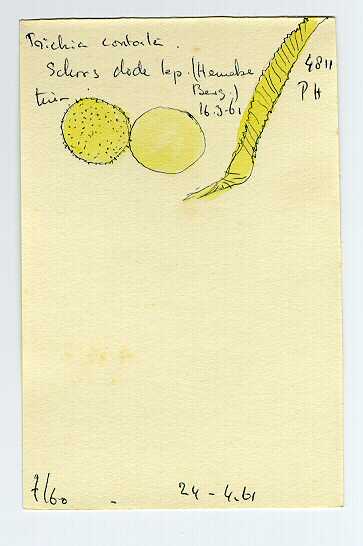 Trichia contorta.
Schors dode iep. (Heemskr
Berg.)
16.3-61
4811
PH
7/60 - 24-4.61